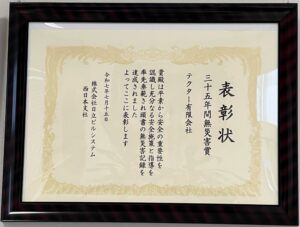 表彰状
三十五年間無災害賞
テクター有限会社
貴殿は平素から安全の重要性を
認識し充分なる安全施策と指導を
率先垂範され頭書の無災害記録を
達成されました
よってここに表彰します
令和七年七月十五日
株式会社日立ビルシステム
西日本支社